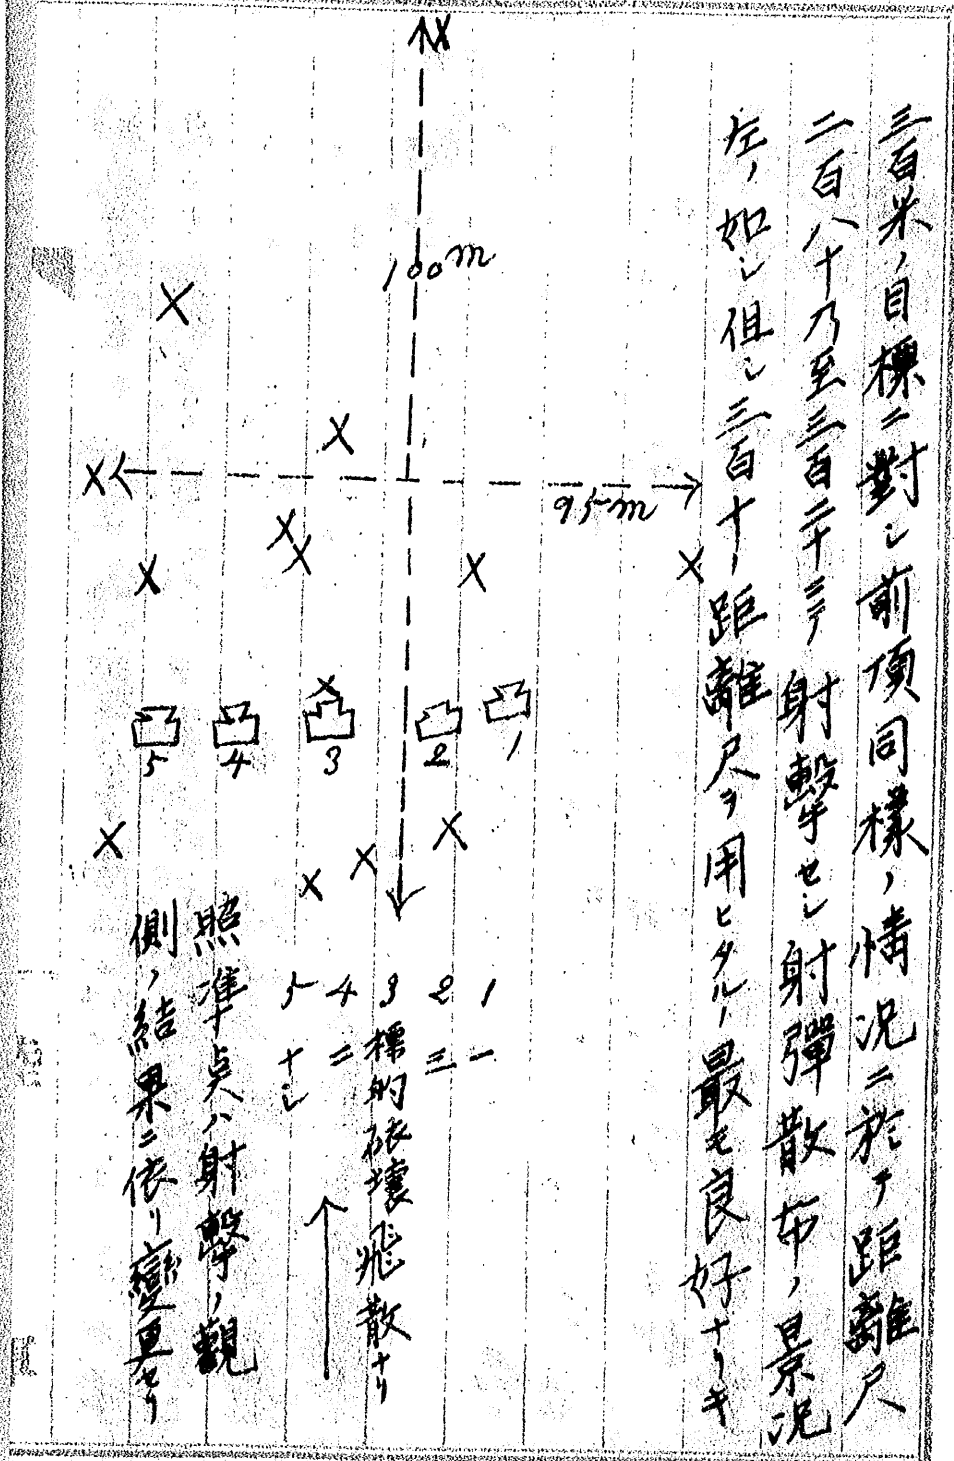 三百米ノ目標ニ對シ前項同様ノ情況ニ於テ距離尺
二百八十乃至三百二十ニテ射撃セシ射彈散布ノ景況
左ノ如シ但シ三百十ノ距離尺ヲ用ヒタルノ最モ良好ナリキ
100m
95m
1
2
3
4
5
1 一
2 三
3 標的破壊飛散ナリ
4 二
5 ナシ
照準点ハ射撃ノ觀
側ノ結果ニ依リ變更セリ